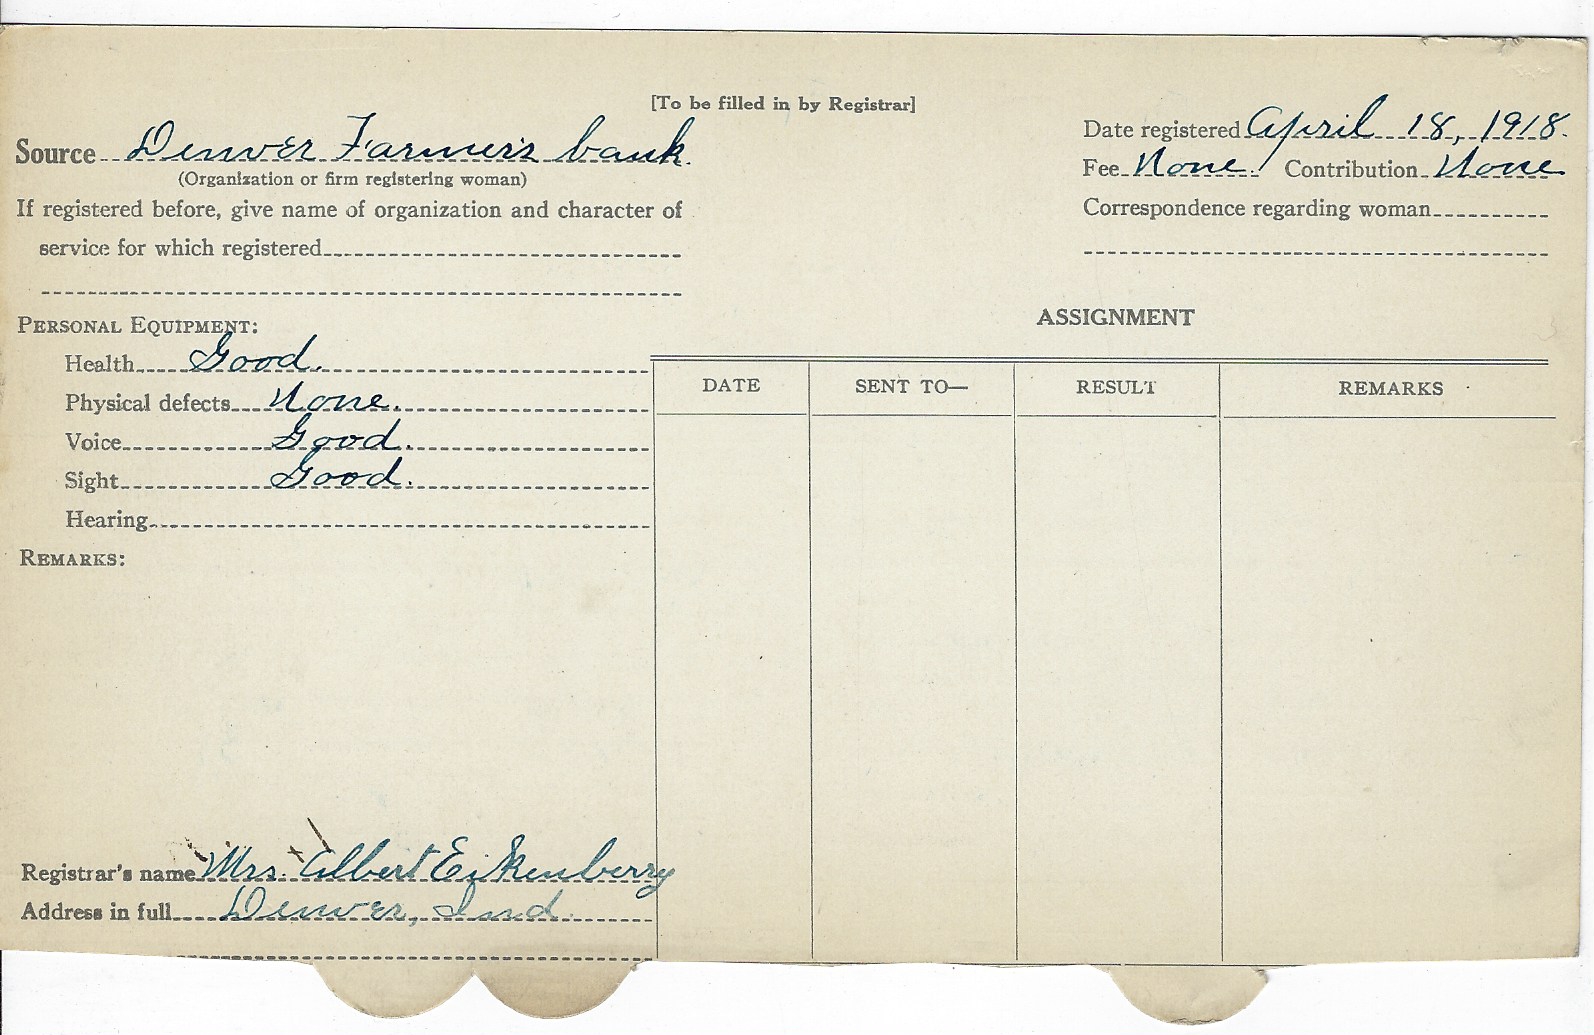 [To be filled in by Registrar]
Source Denver Farmers bank.
(Organization or firm registering woman)
If registered before, give name of organization and character of
service for which registered
Date registered April 18, 1918.
Fee None. Contribution None
Correspondence regarding woman
PERSONAL EQUIPMENT:
Health Good.
Physical defects None.
Voice Good.
Sight Good.
Hearing
REMARKS:
ASSIGNMENT
DATE SENT TO— RESULT REMARKS
Registrar's name Mrs. Albert Eikenberry
Address in full Denver, Ind.